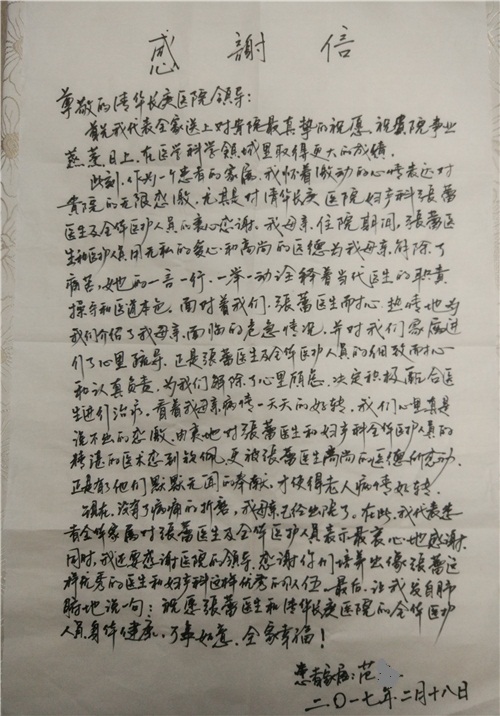 感謝信
尊敬的清华长庚医院领导：
首先我代表全家送上对贵院最真挚的祝愿，祝贵院事业
蒸蒸日上，在医学科学领域里取得更大的成绩。
此刻，作为一个患者的家属，我怀着激动的心情表达对
贵院的无限感激，尤其是对清华长庚医院妇产科張蕾
医生及全体医护人员的衷心感谢。我母亲住院期间，張蕾医
生和医护人员用无私的爱心和高尚的医德为我母亲解除了
病苦，她的一言一行，一举一动诠释着当代医生的职责
操守和医道本色。面对着我们，張蕾医生耐心热情地为
我们介绍了我母亲面临的危急情况，并对我们家属进
行了心里疏导，还是張蕾医生及全体医护人员的细致耐心
和认真负责，为我们解除了心里顾虑，决定积极配合医
生进行治疗，看着我母亲病情一天天的好转，我们心里真是
说不出的感激，由衷地对張蕾医生和妇产科全体医护人员的
精湛的医术感到钦佩，更被張蕾医生高尚的医德所感动，
还是有了他们默默无闻的奉献，才使得老人病情好转。
现在，没有了病痛的折磨，我母亲已给出院了。在此，我代表患
者全体家属对張蕾医生及全体医护人员表示最衷心地感谢。
同时，我还要感谢医院的领导，感谢你们培养出像張蕾这
样优秀的医生和妇产科这样优秀的队伍。最后，让我发自肺
腑地说一句：祝愿張蕾医生和清华长庚医院的全体医护
人员身体健康，万事如意，全家幸福！
患者家属：范
二〇一七年二月十八日